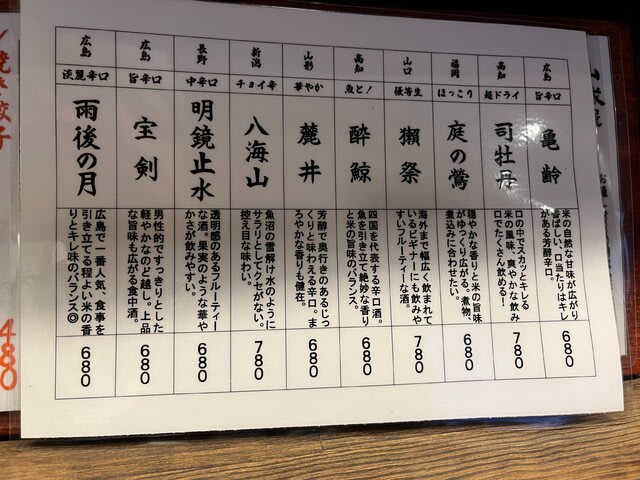 広島
旨辛口
亀齢
米の自然な甘味が広がり
香ばしい。口当たりはキレ
がある芳醇辛口。
680
高知
超ドライ
司牡丹
口の中でスカッとキレる
米の風味。爽やかな飲み
口でたくさん飲める!
780
福岡
ほっこり
庭の鶯
穏やかな香りと米の旨味
がゆっくり広がる。煮物、
煮込みに合わせたい。
680
山口
優等生
獺祭
海外まで幅広く飲まれて
いるビギナーにも飲みや
すいフルーティーな酒。
780
高知
魚と!
酔鯨
四国を代表する辛口酒。
魚を引き立て絶妙な香り
と米の旨味のバランス。
680
山形
華やか
麓井
芳醇で奥行きのあるじっ
くりと味わえる辛口。ま
ろやかな香りも健在。
680
新潟
チョイ辛
八海山
魚沼の雪解け水のように
サラリとしてクセがない。
控え目な味わい。
780
長野
中辛口
明鏡止水
透明感のあるフルーティー
な酒。果実のような華や
かさが飲みやすい。
680
広島
旨辛口
宝剣
男性的ですっきりとした
軽やかなのど越し。上品
な旨味も広がる食中酒。
680
広島
淡麗辛口
雨後の月
広島で一番人気、食事を
引き立てる程よい米の香
りとキレ味のバランス◎
680
焼き餃子
480